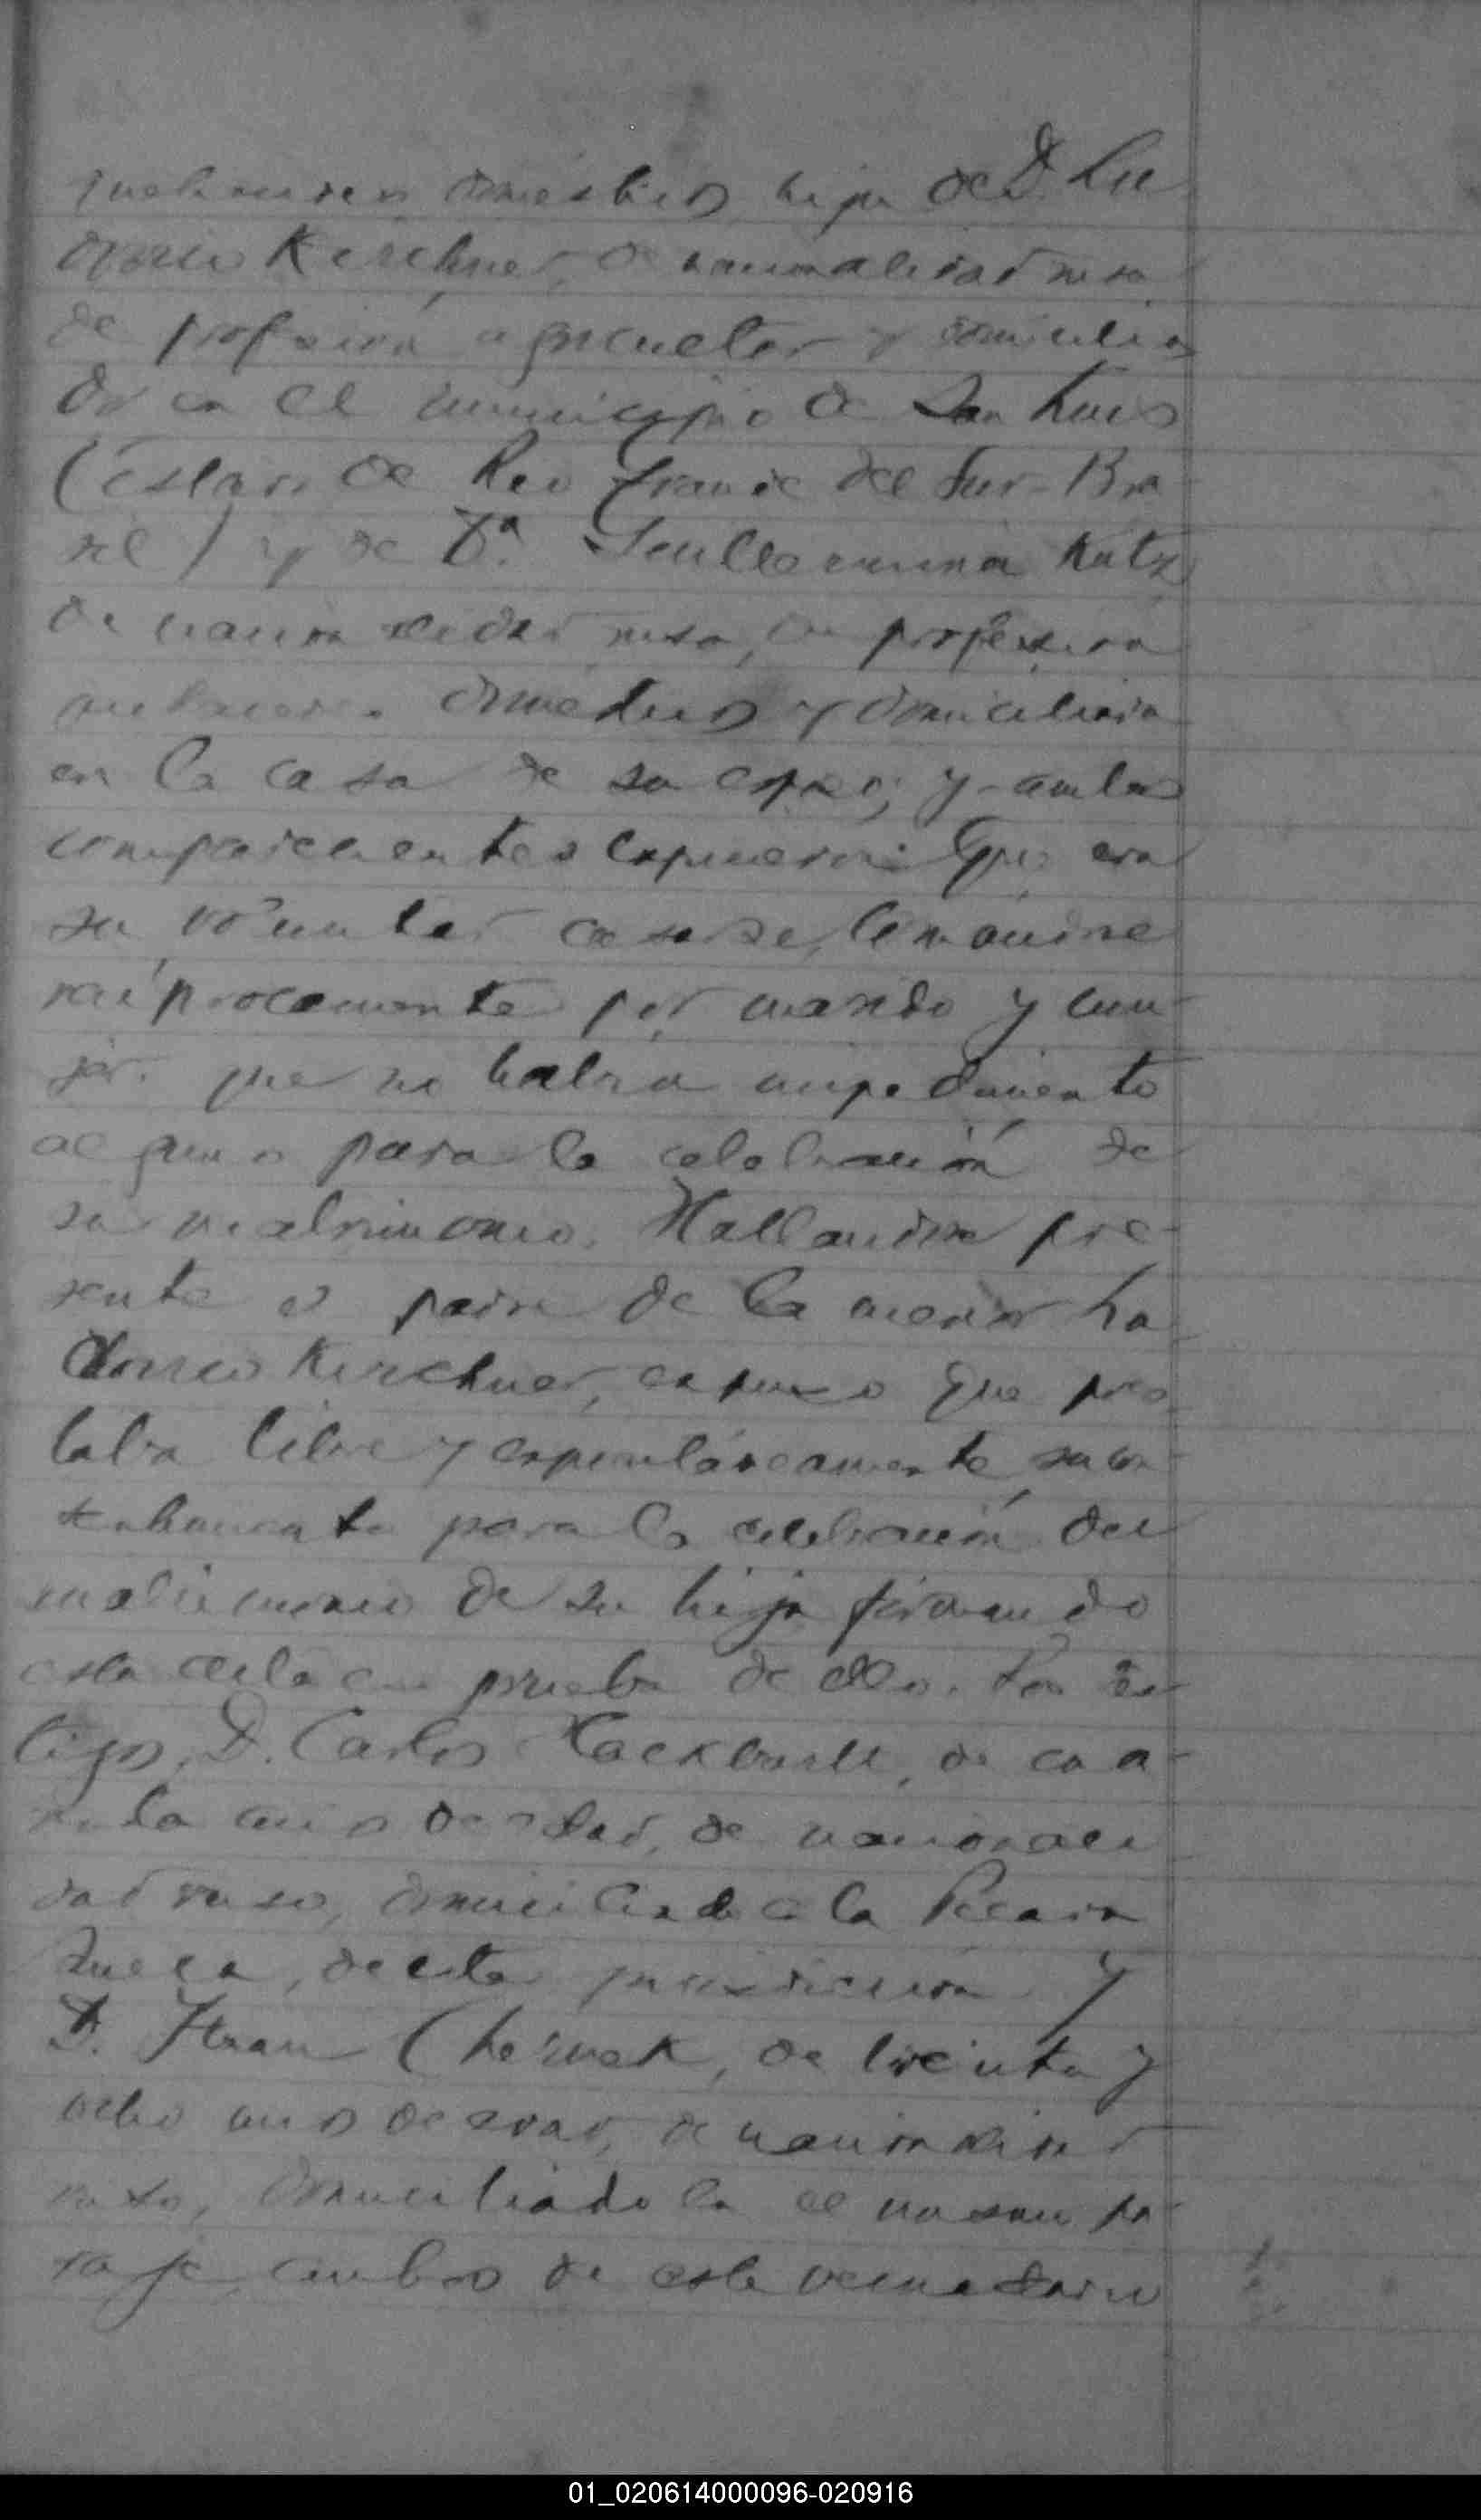 quehaceres domésticos, hija de D. Lu
dovico Kerchner, de nacionalidad rusa
de profesión agricultor y domicilia
do en el municipio de San Luis
(Estado de Rio Grande del Sur - Bra
sil) y de Dª. Guillermina Katz
de nacionalidad rusa, de profesión
quehaceres domésticos y domiciliada
en la casa de su esposo; y ambos
comparecientes expusieron: Que era
su voluntad casarse, tomándose
recíprocamente por marido y mu-
jer. que no había impedimento
alguno para la celebración de
su matrimonio. Hallándose pre-
sente el padre de la menor Lu
dovico Kerchner, expuso que pres
taba libre y espontáneamente su con-
sentimiento para la celebración del
matrimonio de su hija firmando
esta acta en prueba de ello. Son tes
tigos, D. Carlos Hackbartt, de cua-
renta años de edad, de nacionali
dad rusa, domiciliado a la Picada
Sueca, de esta jurisdicción y
D. Juan Chernek, de treinta y
ocho años de edad, de nacionalidad
rusa, domiciliado en el mismo pa-
raje, ambos de este vecindario
01_020614000096-020916